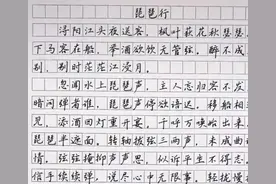 琵琶行
浔阳江头夜送客，枫叶荻花秋瑟瑟。
下马客在船，举酒欲饮无管弦。醉不成
别，别时茫茫江浸月。
忽闻水上琵琶声，主人忘归客不发
暗问弹者谁，琵琶声停欲语迟。移船相
见，添酒回灯重开宴。千呼万唤始出来
琵琶半遮面。转轴拨弦三两声，未成曲
情。弦弦掩抑声声思，似诉平生不得志
信手续续弹，说尽心中无限事。轻拢慢